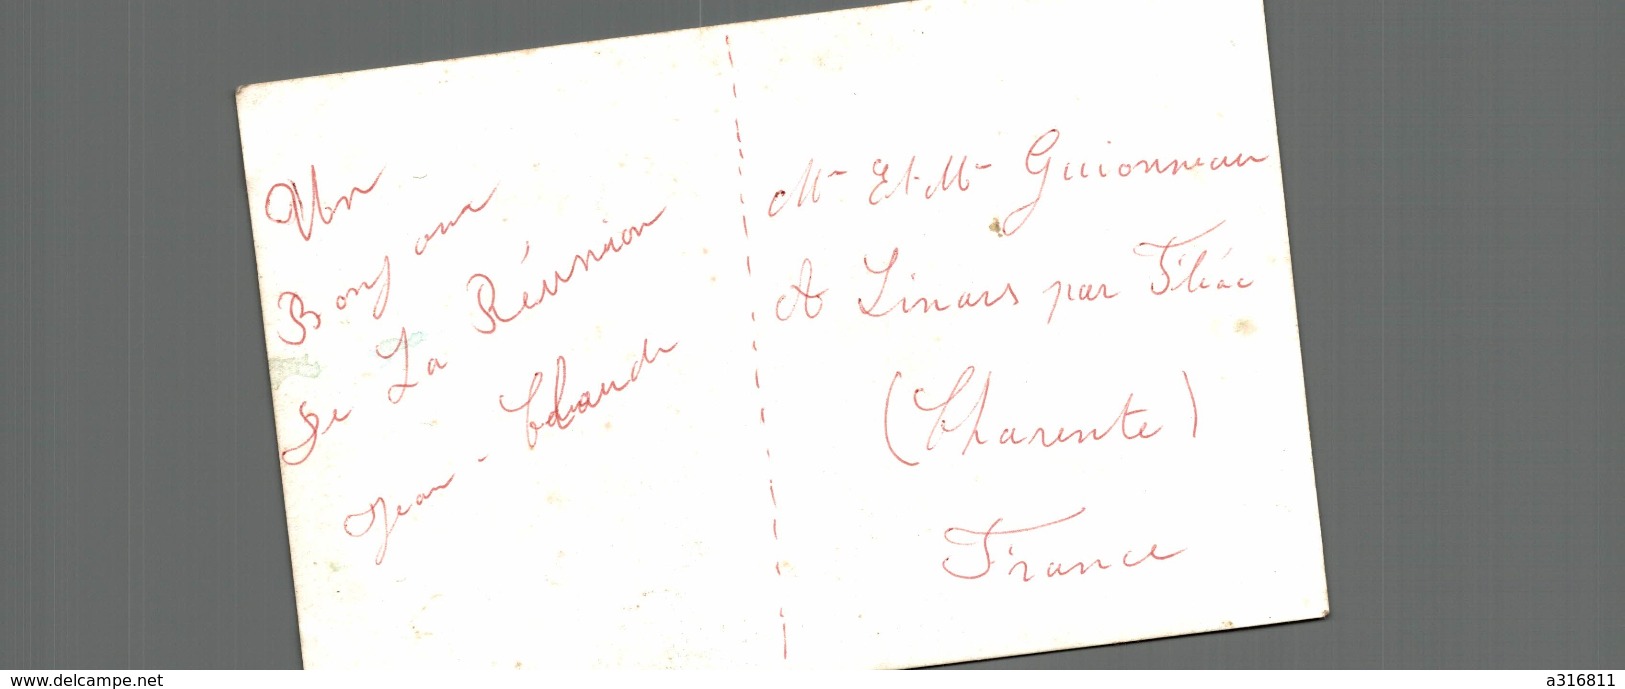 Un
Bonjour
De La Réunion
Jean-Claude
Mr Et Mme Guionneau
A Linars par Fléac
(Charente)
France
www.delcampe.net
a316811